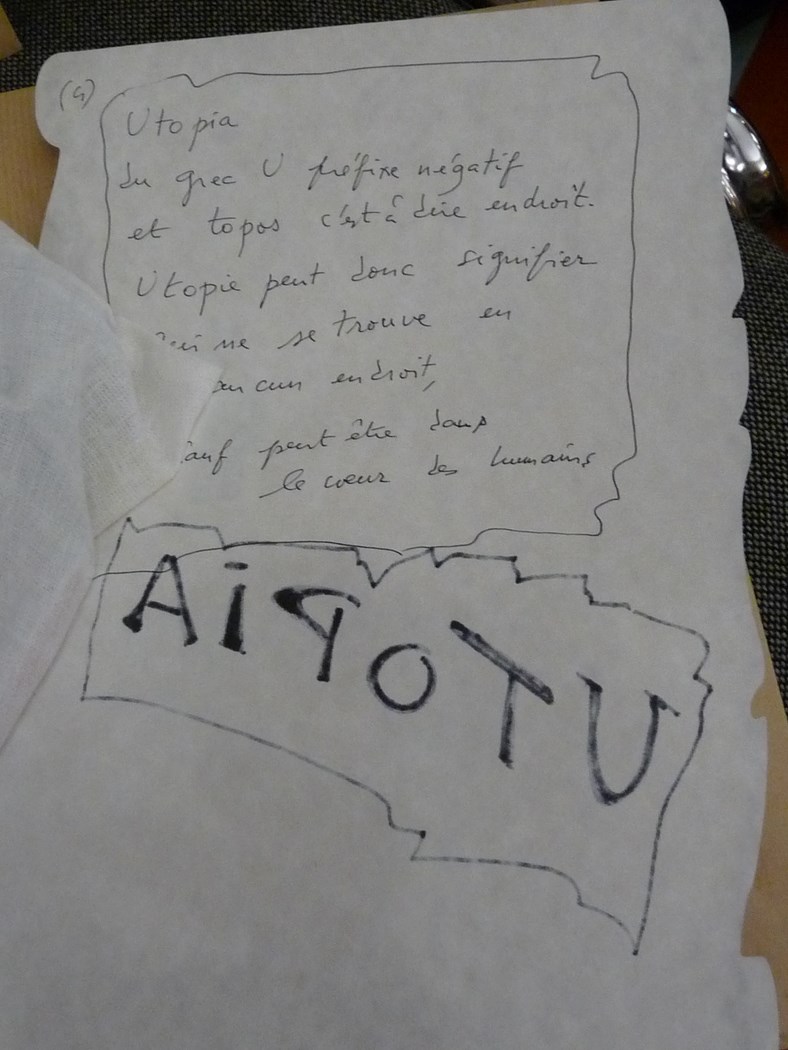 (4)
Utopia
du grec U préfixe négatif
et topos c'est à dire endroit.
Utopie peut donc signifier
ne se trouve en
aucun endroit,
sauf peut être dans
le cœur des humains
AiPOTU